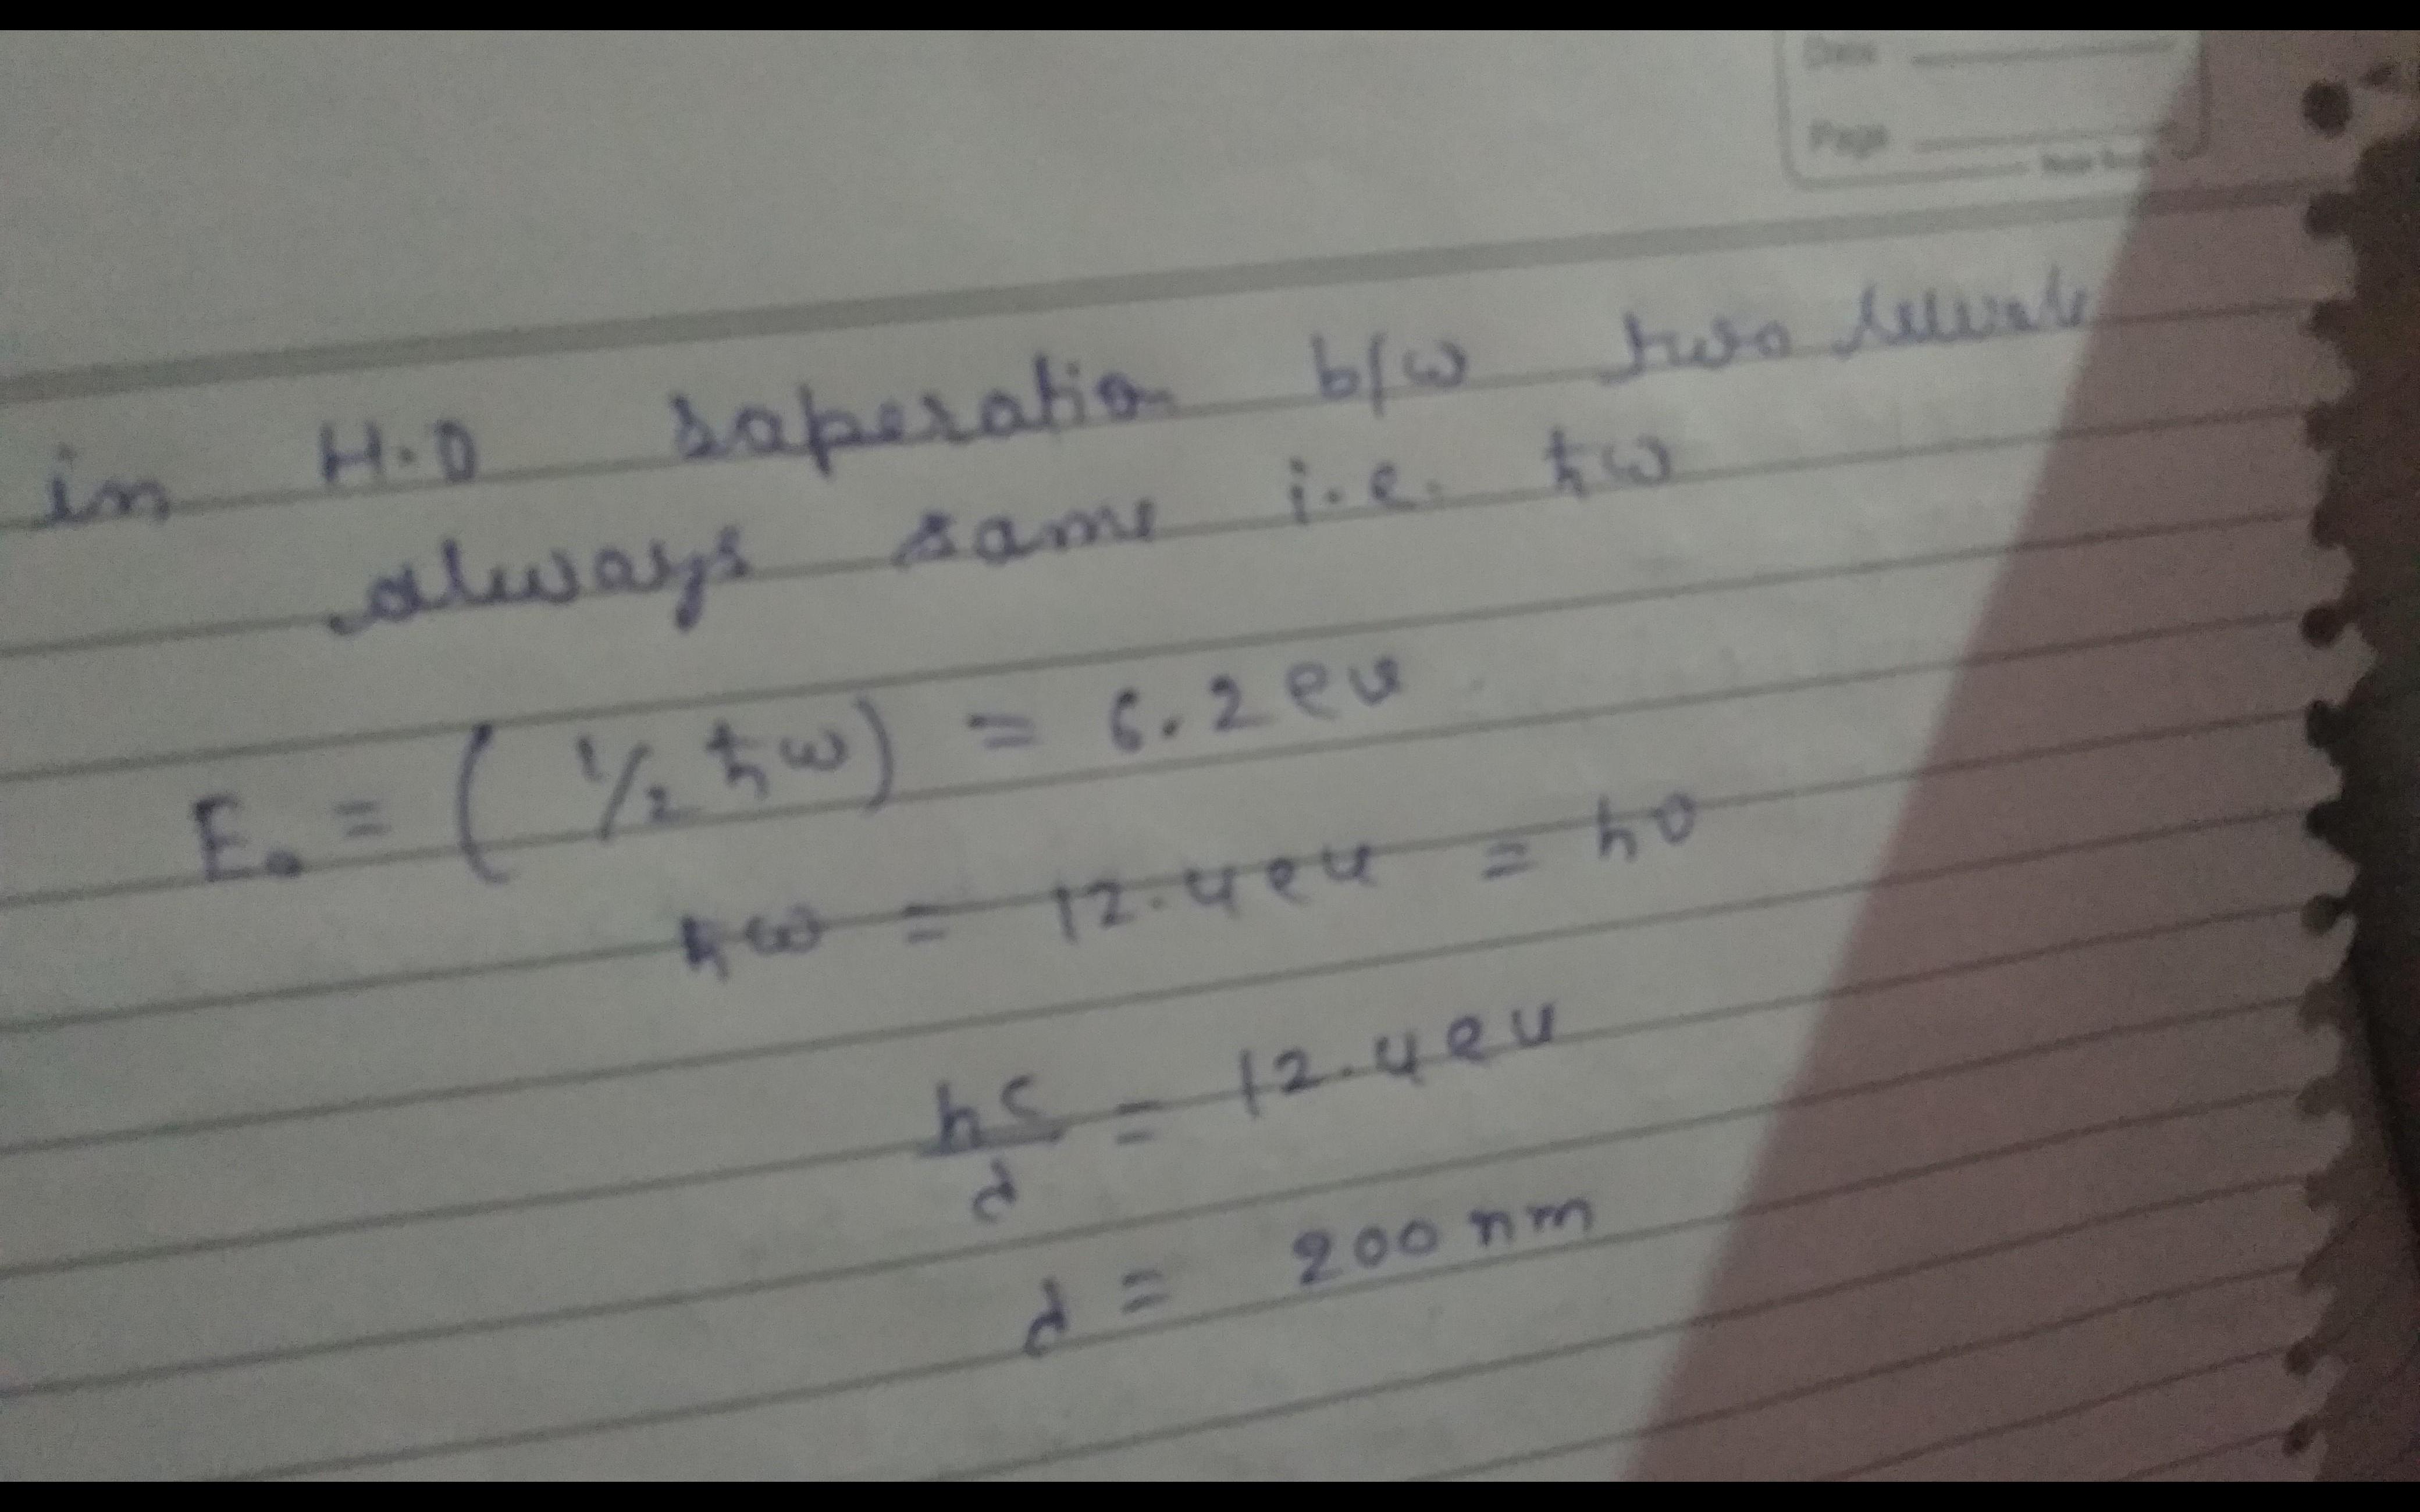 Date
Page
in H.O saperation b/w two levels
always same i.e. ħω
E₀ = ( 1/2 ħω) = 6.2 ev
ħω = 12.4 ev = hν
hc/λ = 12.4 ev
λ = 200 nm